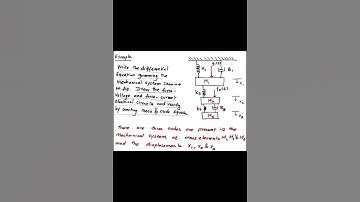 Example
Write the differential
Equation governing the
Mechanical system shown
in fig. Draw the force-
Voltage and force-current
Electrical circuits and verify
by writing mesh & node Equns.
K₁
B₁
M₁
x₁
K₂
M₂
x₂
B₃
M₃
x₃
There are three nodes are present in the
mechanical system at mass elements M₁ M₂ & M₃
and the displacements x₁, x₂ & x₃